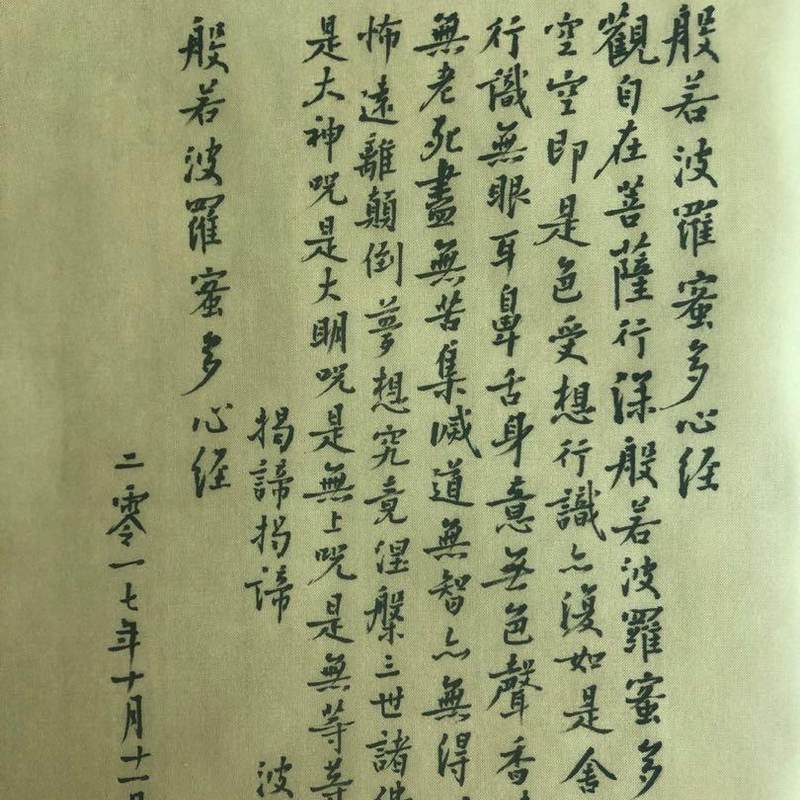 般若波羅蜜多心经
觀自在菩薩行深般若波羅蜜多
空空即是色受想行識亦復如是舍
行識無眼耳鼻舌身意無色聲香
無老死盡無苦集滅道無智亦無得
怖遠離顛倒夢想究竟涅槃三世諸佛
是大神咒是大明咒是無上咒是無等等
揭諦揭諦 波
般若波羅蜜多心经
二零一七年十月十一日